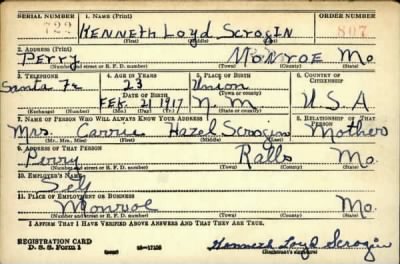 SERIAL NUMBER 1. NAME (Print) ORDER NUMBER
722 KENNETH LOYD SCROGIN 807
(First) (Middle) (Last)
2. ADDRESS (Print)
Perry MONROE Mo.
(Number and street or R. F. D. number) (Town) (County) (State)
3. TELEPHONE 4. AGE IN YEARS 5. PLACE OF BIRTH 6. COUNTRY OF CITIZENSHIP
Santa Fe 23 Union
DATE OF BIRTH (Town or county)
FEB. 21 1917 N. M. U.S.A
(Exchange) (Number) (Mo.) (Day) (Yr.) (State or country)
7. NAME OF PERSON WHO WILL ALWAYS KNOW YOUR ADDRESS 8. RELATIONSHIP OF THAT PERSON
Mrs. Carrie Hazel Scrogin Mother
(Mr., Mrs., Miss) (First) (Middle) (Last)
9. ADDRESS OF THAT PERSON
Perry Ralls Mo.
(Number and street or R. F. D. number) (Town) (County) (State)
10. EMPLOYER'S NAME
Self
11. PLACE OF EMPLOYMENT OR BUSINESS
Monroe Mo.
(Number and street or R. F. D. number) (Town) (County) (State)
I AFFIRM THAT I HAVE VERIFIED ABOVE ANSWERS AND THAT THEY ARE TRUE.
REGISTRATION CARD
D. S. S. Form 1 16-17105 Kenneth Loyd Scrogin
(Registrant's signature)